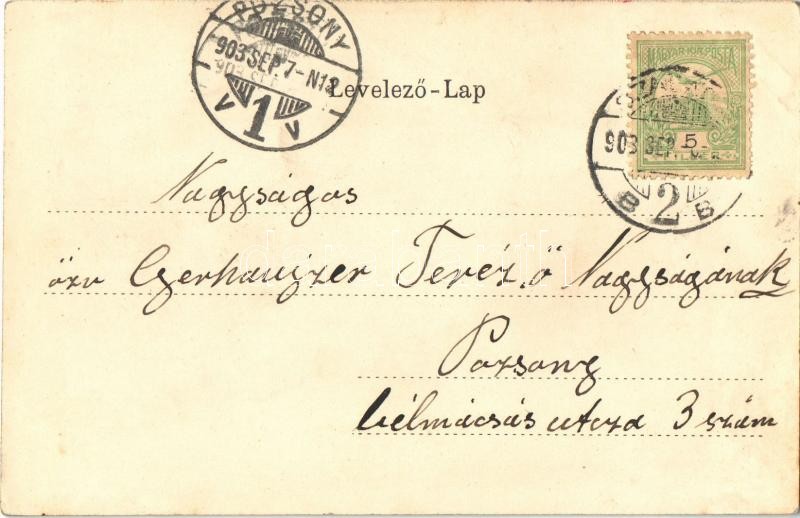 POZSONY
903 SEP 7-N12
V 1 V
Levelező-Lap
MAGYAR KIR. POSTA
5
903 SEP
B 2 B
Nagyságos
özv Gerhauszer Teréz Ő Nagyságának
Pozsony
utcza 3 szám